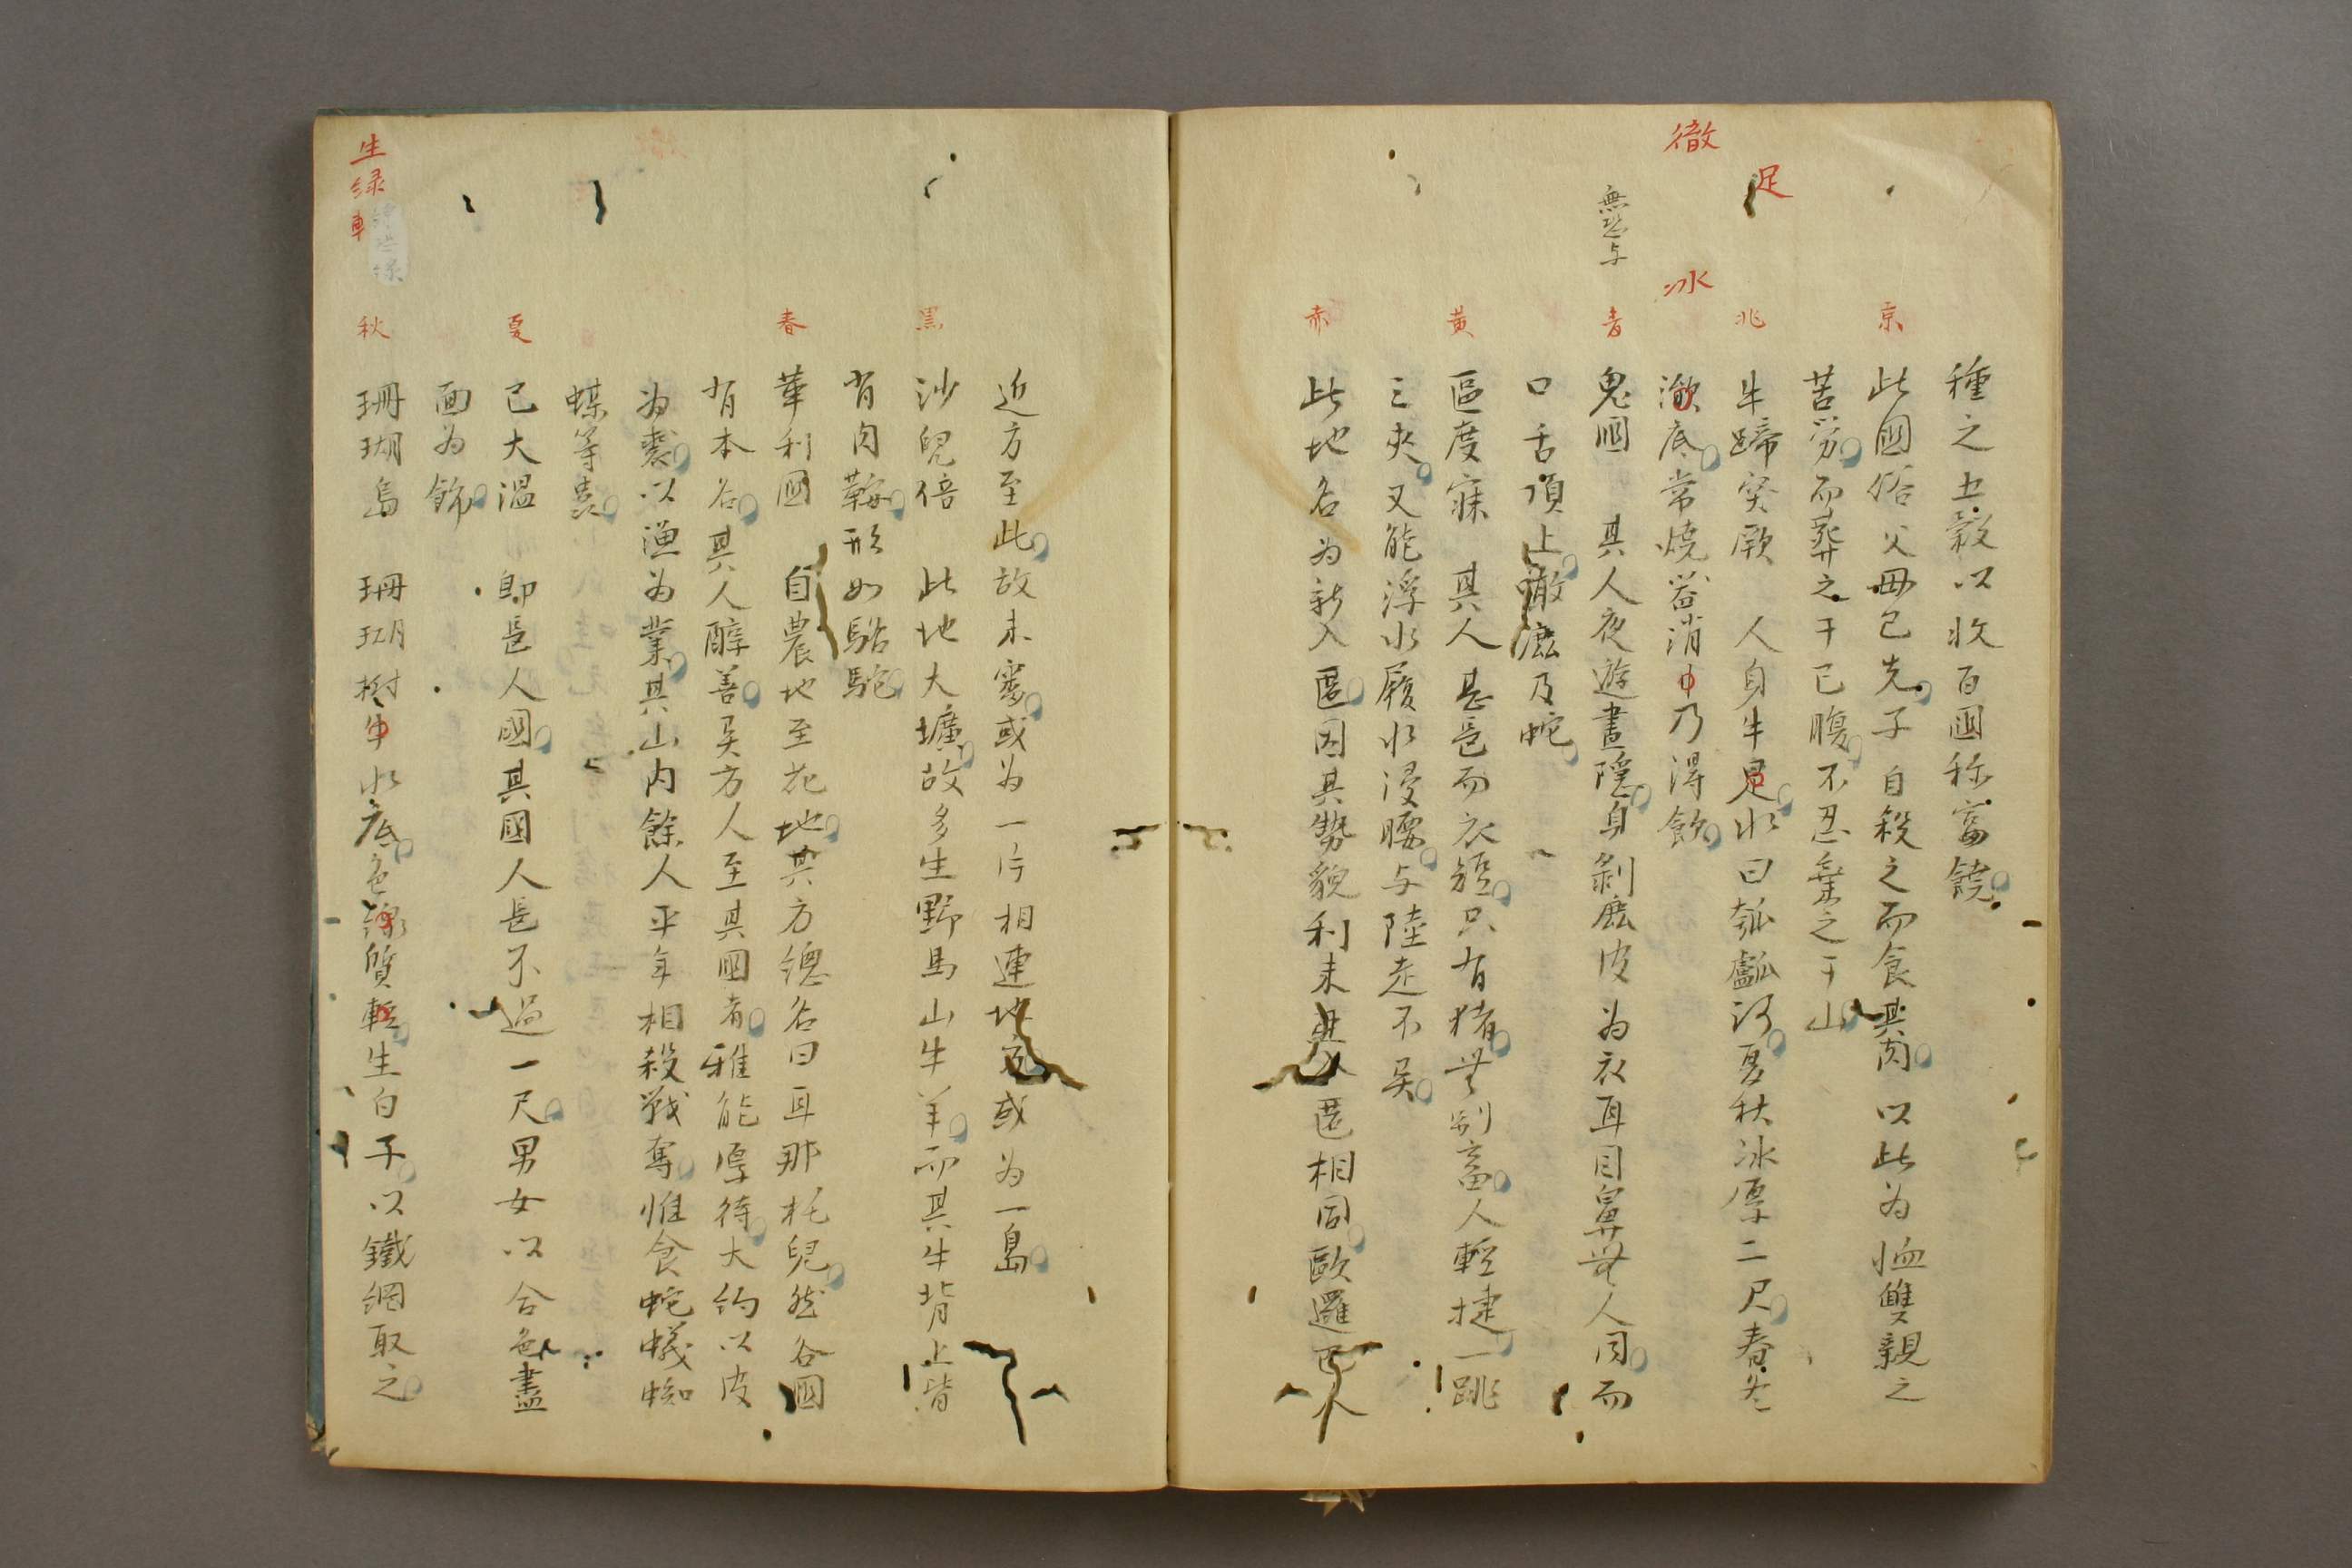 徹
足
無盌与
冰
京
兆
青
黃
赤
種之五穀以收百國称富饒
此國俗父毋已先子自殺之而食其肉以此為恤雙親之
苦労而葬之于已腹不忍棄之于山
牛蹄突厥 人身牛足水曰瓠𤬛河夏秋冰厚二尺春冬
澈底常燒器消中乃得飲
鬼國 其人夜遊晝隠身剝麀皮為衣耳目鼻㒵人同而
口舌頂上澈麀及蛇
區度寐 其人甚長而衣短只有猪無别畜人輕捷一跳
三夾又能浮水履水浸腰与陸走不異
此地名為新入匿因其勢貌利未與入匿相同歐邏巴人
近方至此故未審或為一片相連地或為一島
沙兒倍 此地大壙故多生野馬山牛羊而其牛背上皆
肯肉鞍形如駱駝
華利國 自農地至花地其方總名曰耳那托兒然各國
有本名其人醇善異方人至其國者雅能厚待大約以皮
為裘以漁為業其山内餘人平年相殺戰奪惟食蛇蟻蜘
蛛等虫
已大溫 即長人國其國人長不過一尺男女以合色畫
面為飾
珊瑚島 珊瑚樹生水底色綠質輕生白子以鐵網取之
黑
春
夏
秋
生
緑